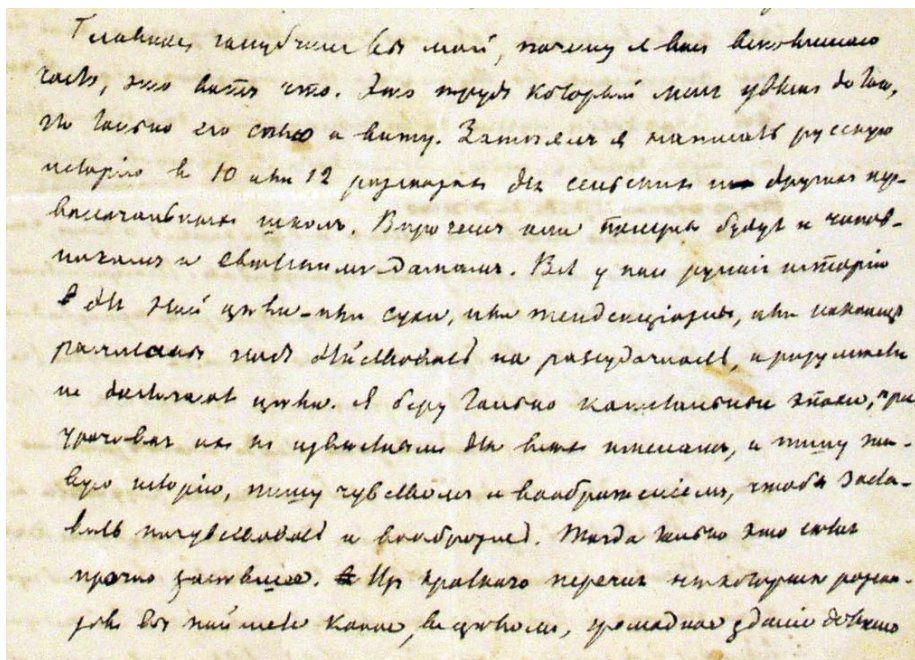 Главное
почему я вас
часъ, это вотъ что. Это трудъ который меня увлекъ до того,
что только его сплю и вижу. Затѣялъ я написать русскую
исторію въ 10 или 12 разсказахъ для сельскихъ и другихъ пер-
воначальныхъ школъ. Впрочемъ они полезны будутъ и чинов-
никамъ и свѣтскимъ дамамъ. Всѣ у насъ русскія исторіи
для этой цѣли – или сухи, или тенденціозны, или наконецъ
на разсудочность, а разумѣется
не достигаютъ цѣли. Я беру только капитальныя эпохи, прі-
урочивая ихъ къ извѣстнымъ для всѣхъ именамъ, и пишу жи-
вую исторію, пишу чувствомъ и воображеніемъ, чтобы заста-
вить почувствовать и вообразить. Тогда только это
прочно Изъ краткаго перечня нѣкоторыхъ разска-
зовъ вы поймете какое, въ цѣломъ, громадное зданіе должно